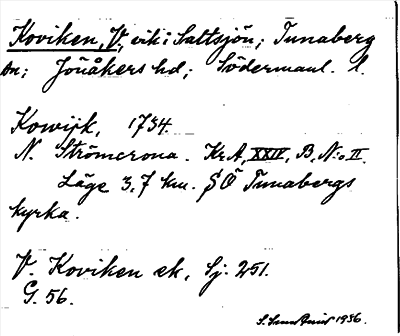 Koviken, V., vik i Saltsjön; Tunaberg
sn; Jönåkers hd; Södermanl. l.
Kowijk, 1734.
N. Strömcrona. Kr.A, XXIV, B, N:o II.
Läge 3,7 km. SÖ Tunabergs
kyrka.
V. Koviken ek, Sj. 251.
G. 56.
1936.